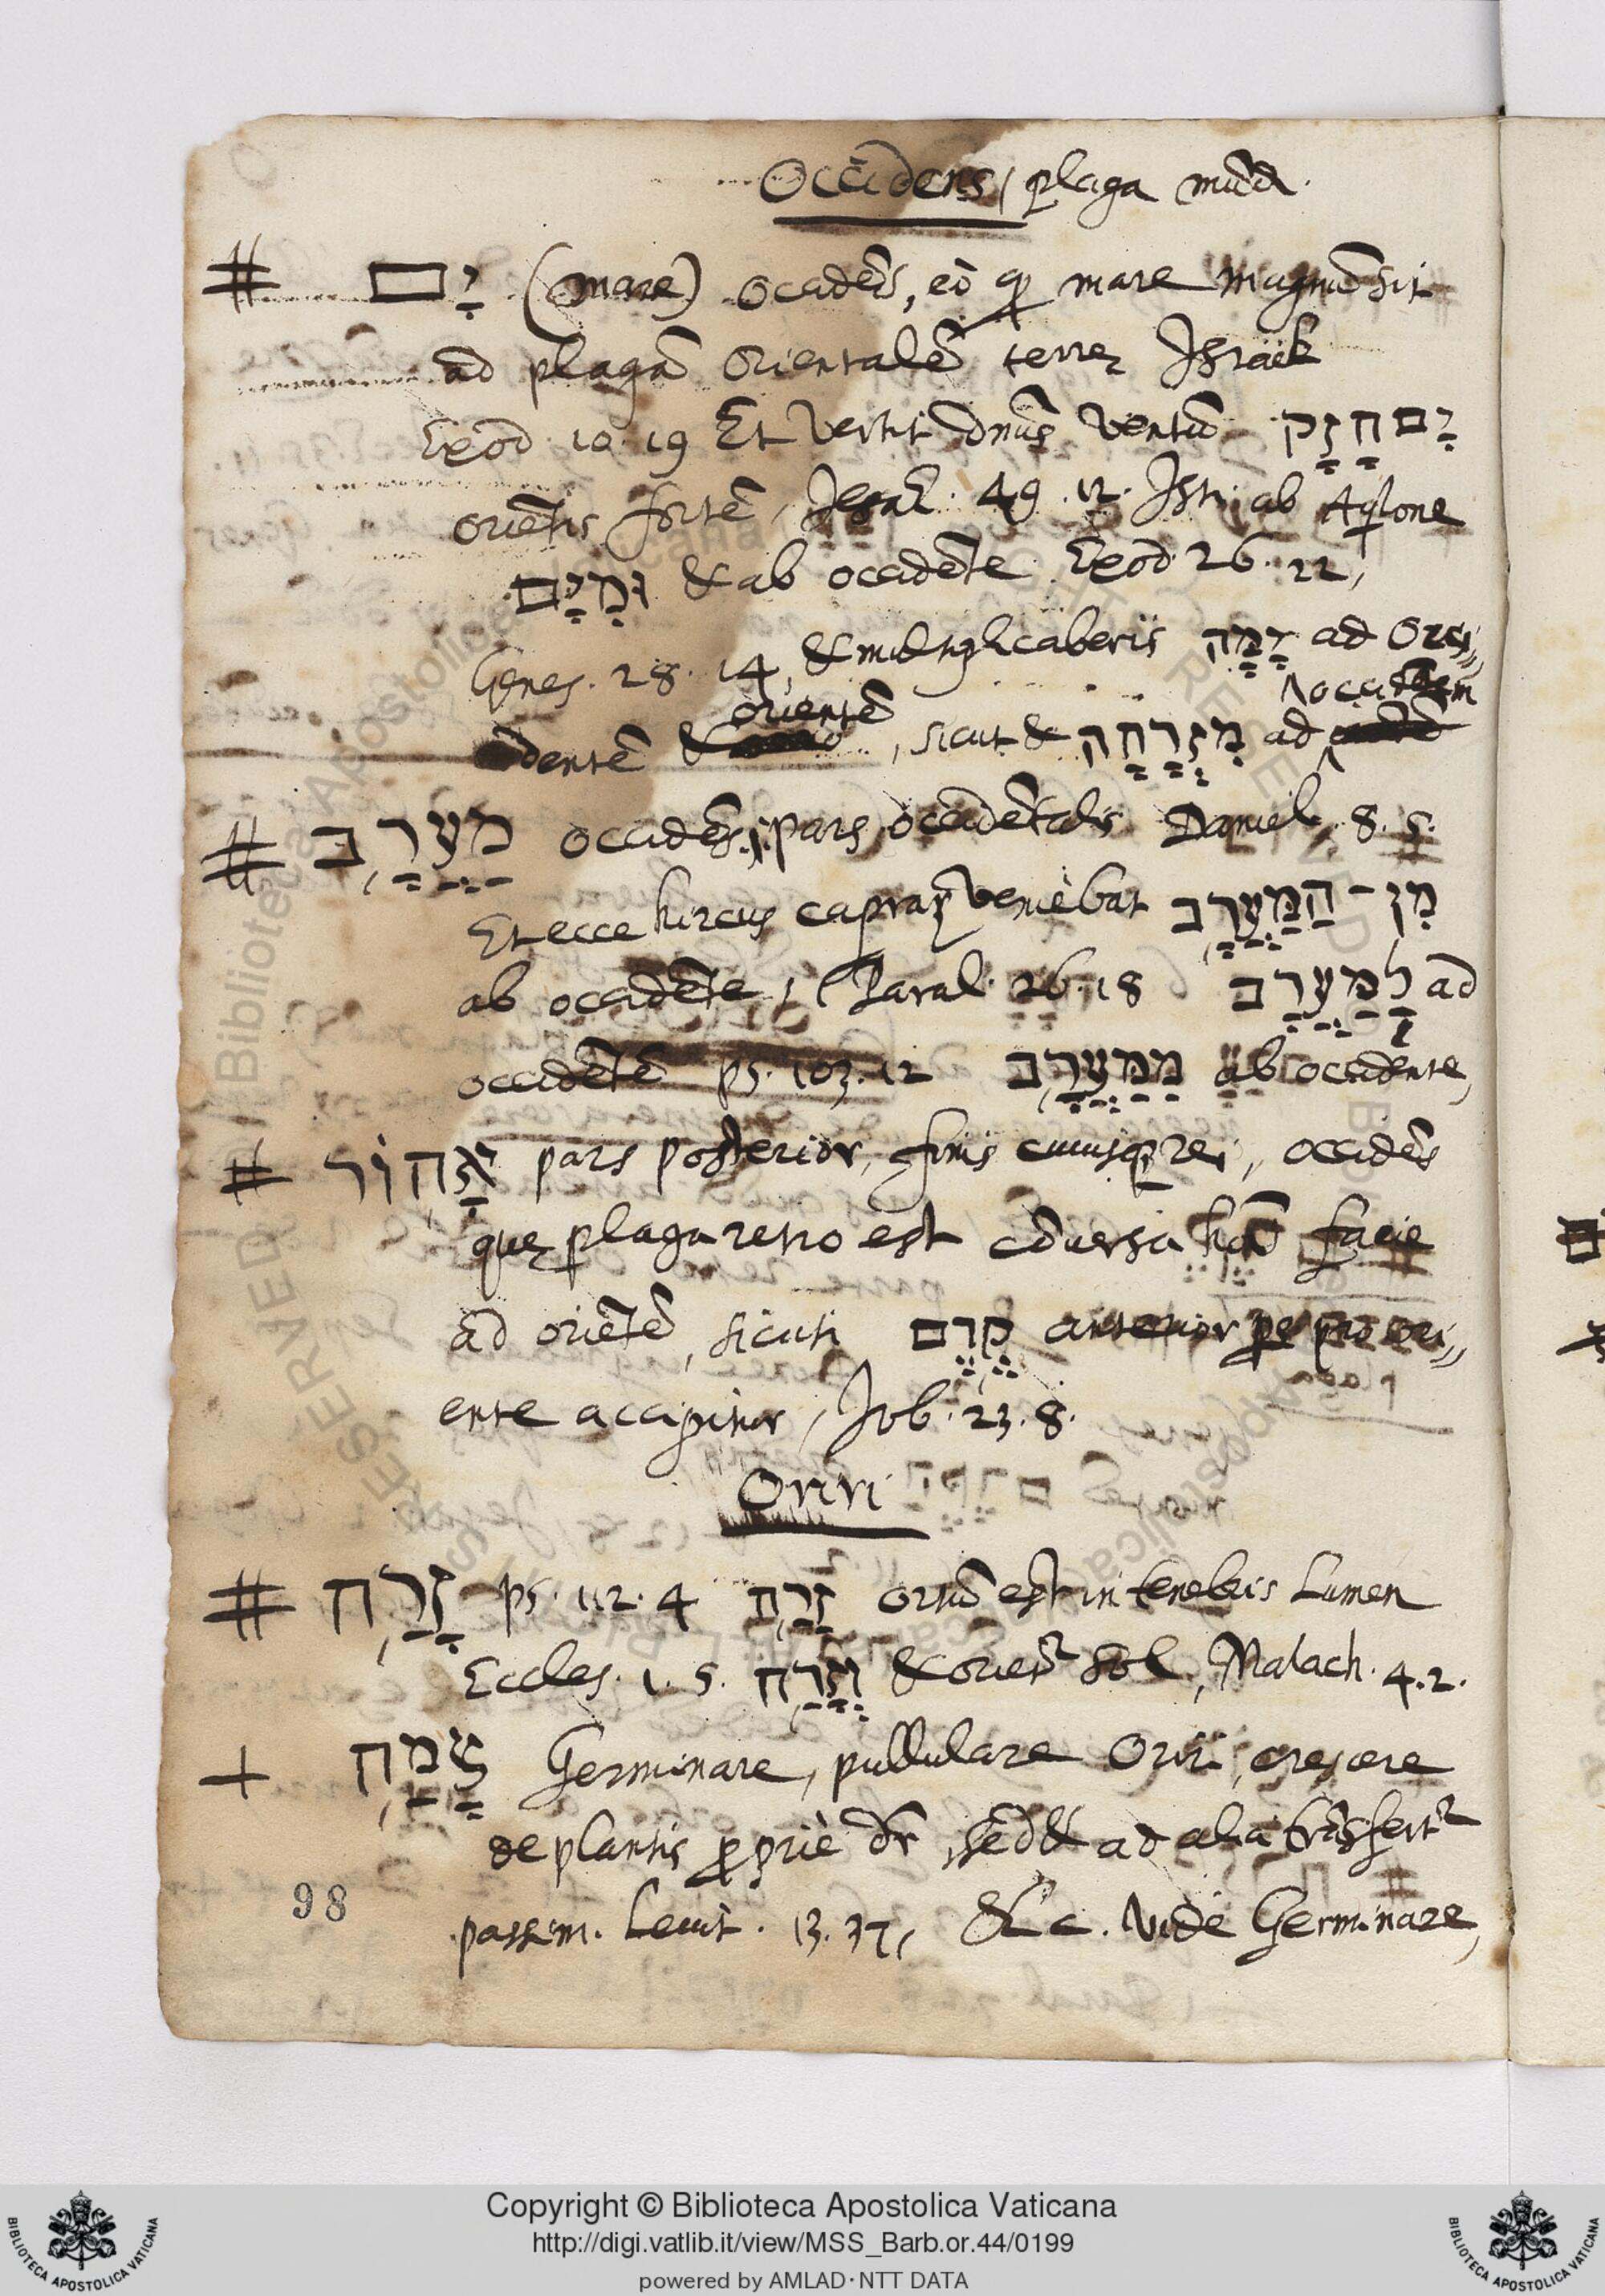 Occidens, plaga mūd.
יָם (mare) occidēs, eò q mare magnū sit
ad plagā Orientalē terrę Israel
Exod. 10. 19 Et vertit dnūs ventū יָם חָזָק
oriētis fortē, Jesai. 49. 12. Isti ab Aqlone
וּמִיָּם & ab occidēte Exod. 26. 22,
Genes. 28. 14, & multiplicaberis יָמָּה ad Occi⸗
dentē & orientē, sicut & מִזְרָחָה ad occidētem
מַעֲרָב occidēs, pars occidētalis Daniel. 8. 5.
Et ecce hircus caprarū veniebat מִן־הַמַּעֲרָב
ab occidēte, 1 Paral. 26. 18 לַמַּעֲרָב ad
occidētē ps. 103. 12 מִמַּעֲרָב ab occidente,
אָחוֹר pars posterior, finis cuiusq rei, occidēs
quę plaga retro est cōversa facie
ad oriētē, sicuti קֶדֶם anterior pro ori⸗
ente accipitur, Job. 23. 8.
Oriri
זָרַח ps. 112. 4 זָרַח ortū est in tenebris Lumen
Eccles. 1. 5. וְזָרַח & oriet sol, Malach. 4. 2.
צָמַח Germinare, pullulare Oriri, crescere
de plantis propriè dr, sed & ad alia trāsfert
passim. Levit. 13. 37, &c. Vide Germinare,
98
Copyright © Biblioteca Apostolica Vaticana
http://digi.vatlib.it/view/MSS_Barb.or.44/0199
powered by AMLAD·NTT DATA
BIBLIOTECA APOSTOLICA VATICANA
BIBLIOTECA APOSTOLICA VATICANA